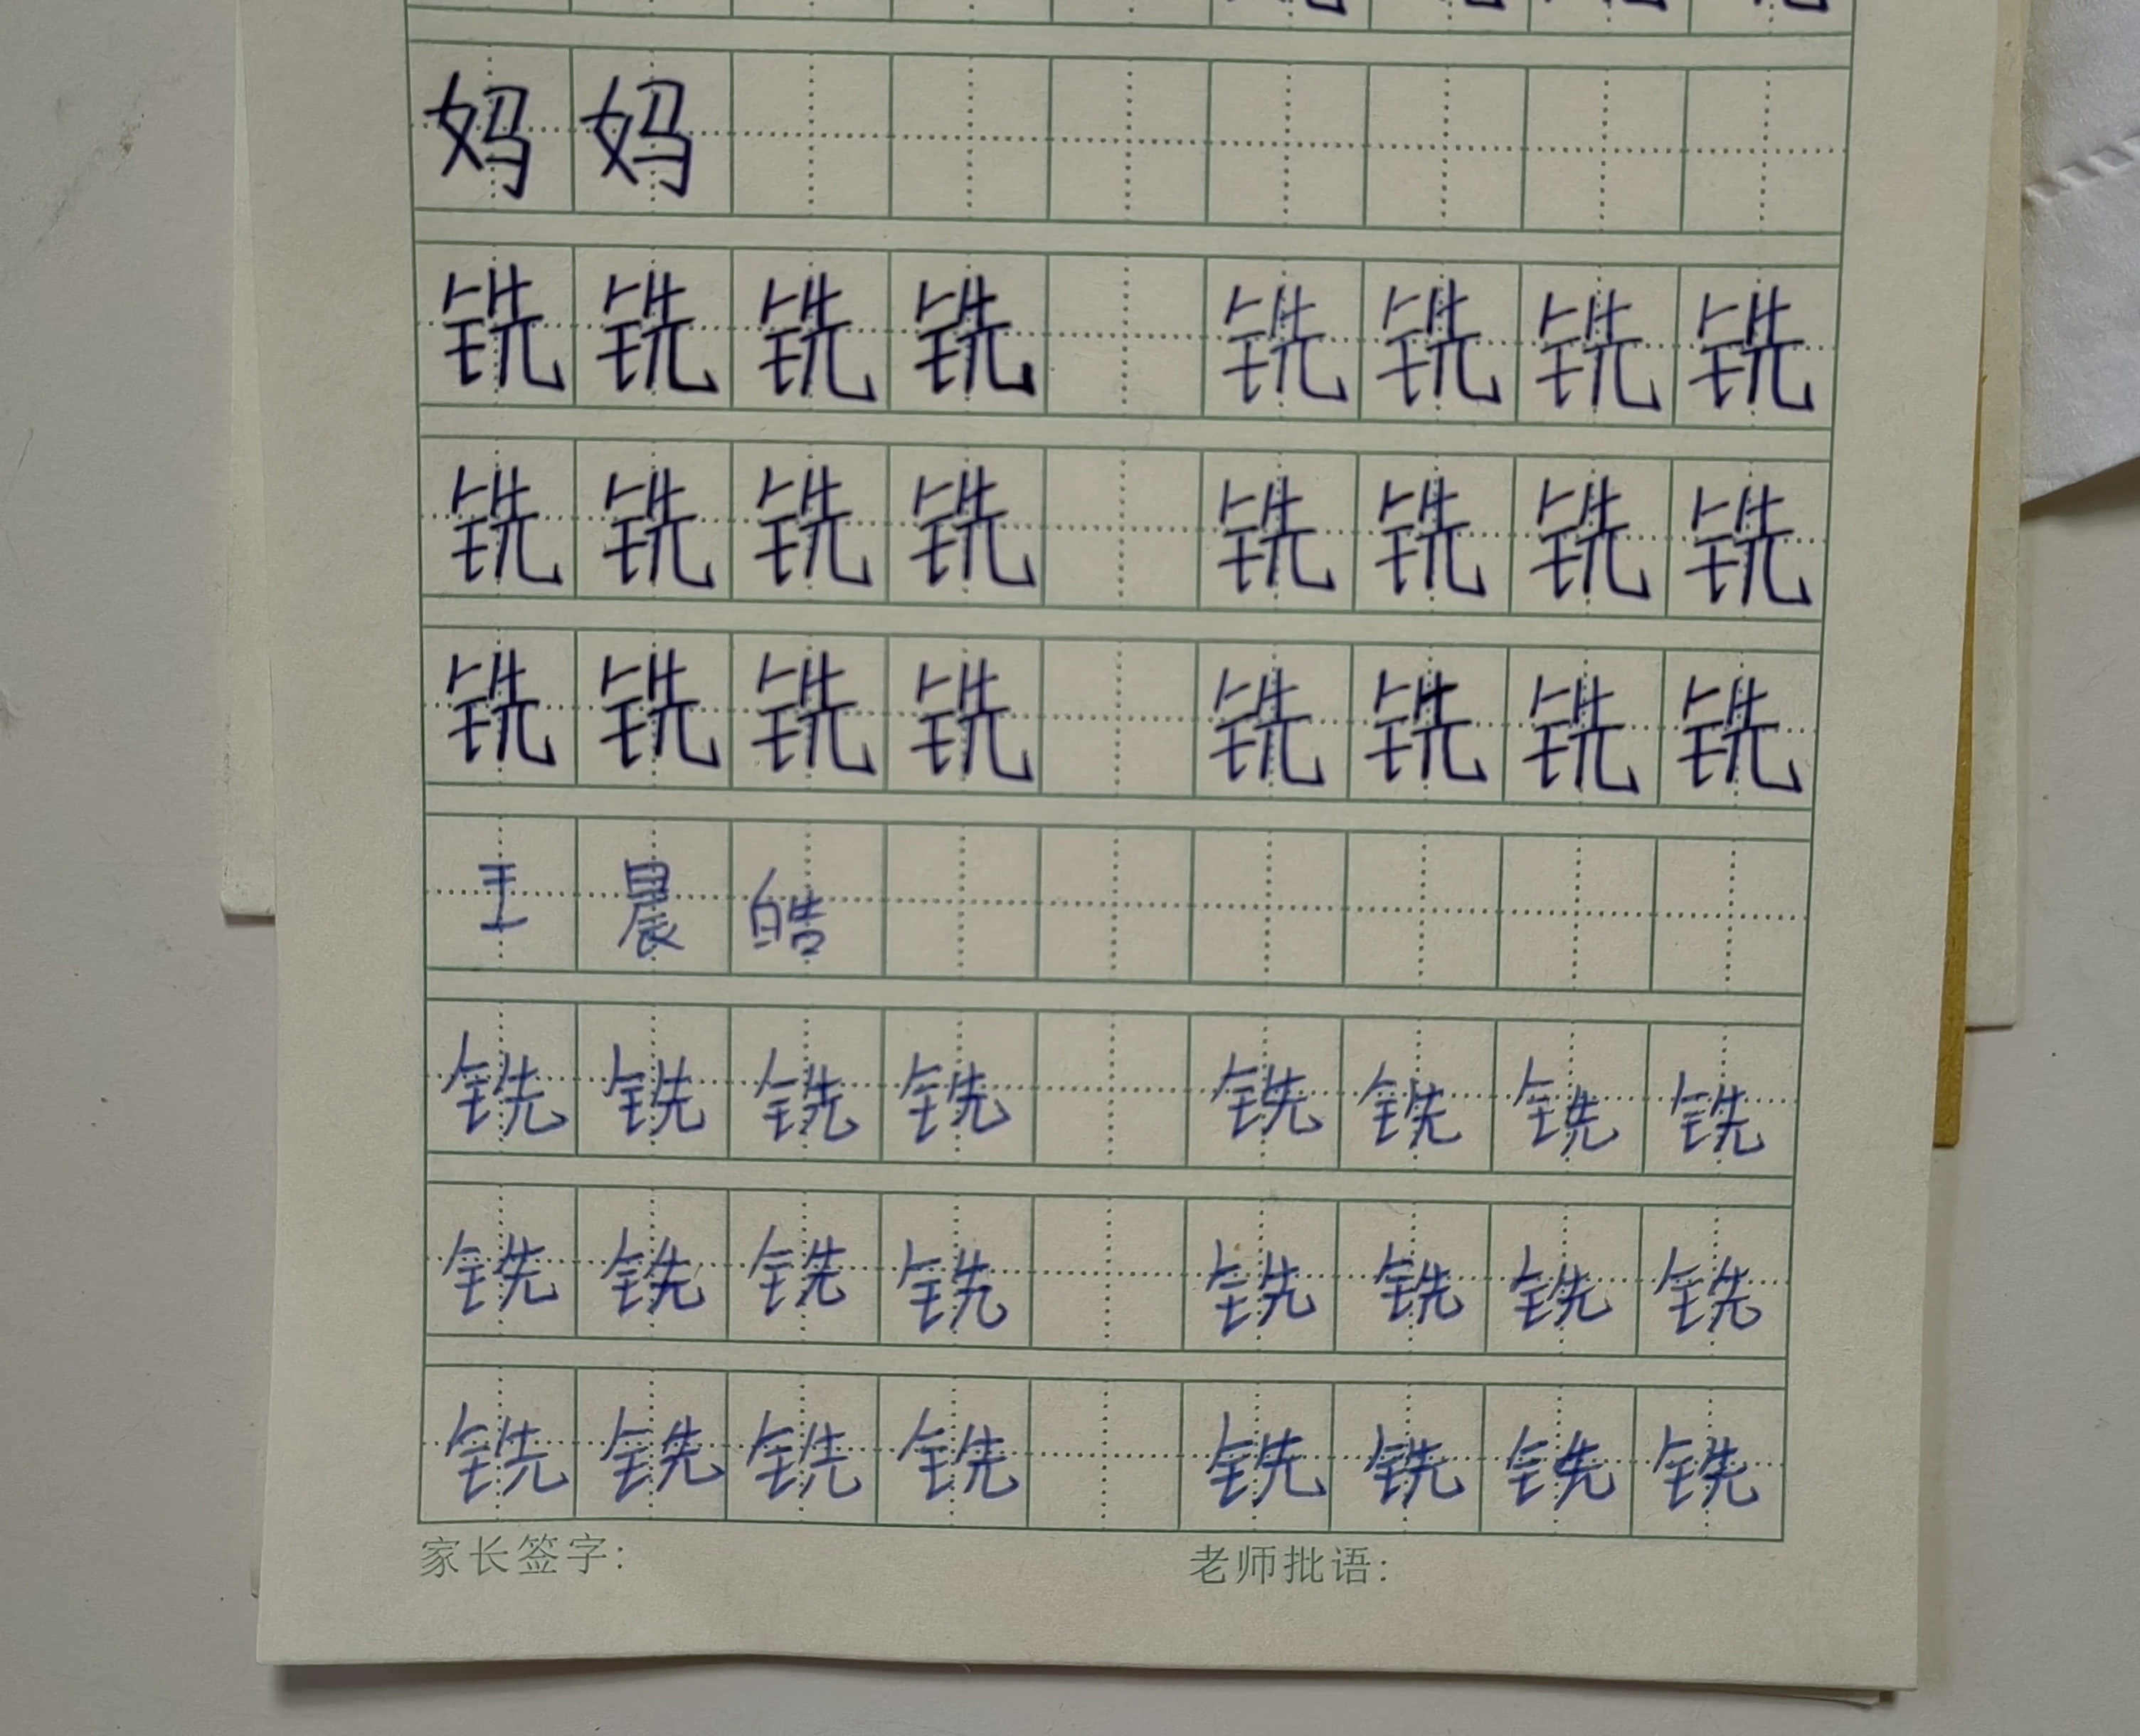 妈妈
铣铣铣铣 铣铣铣铣
铣铣铣铣 铣铣铣铣
铣铣铣铣 铣铣铣铣
王晨皓
铣铣铣铣 铣铣铣铣
铣铣铣铣 铣铣铣铣
铣铣铣铣 铣铣铣铣
家长签字: 老师批语: